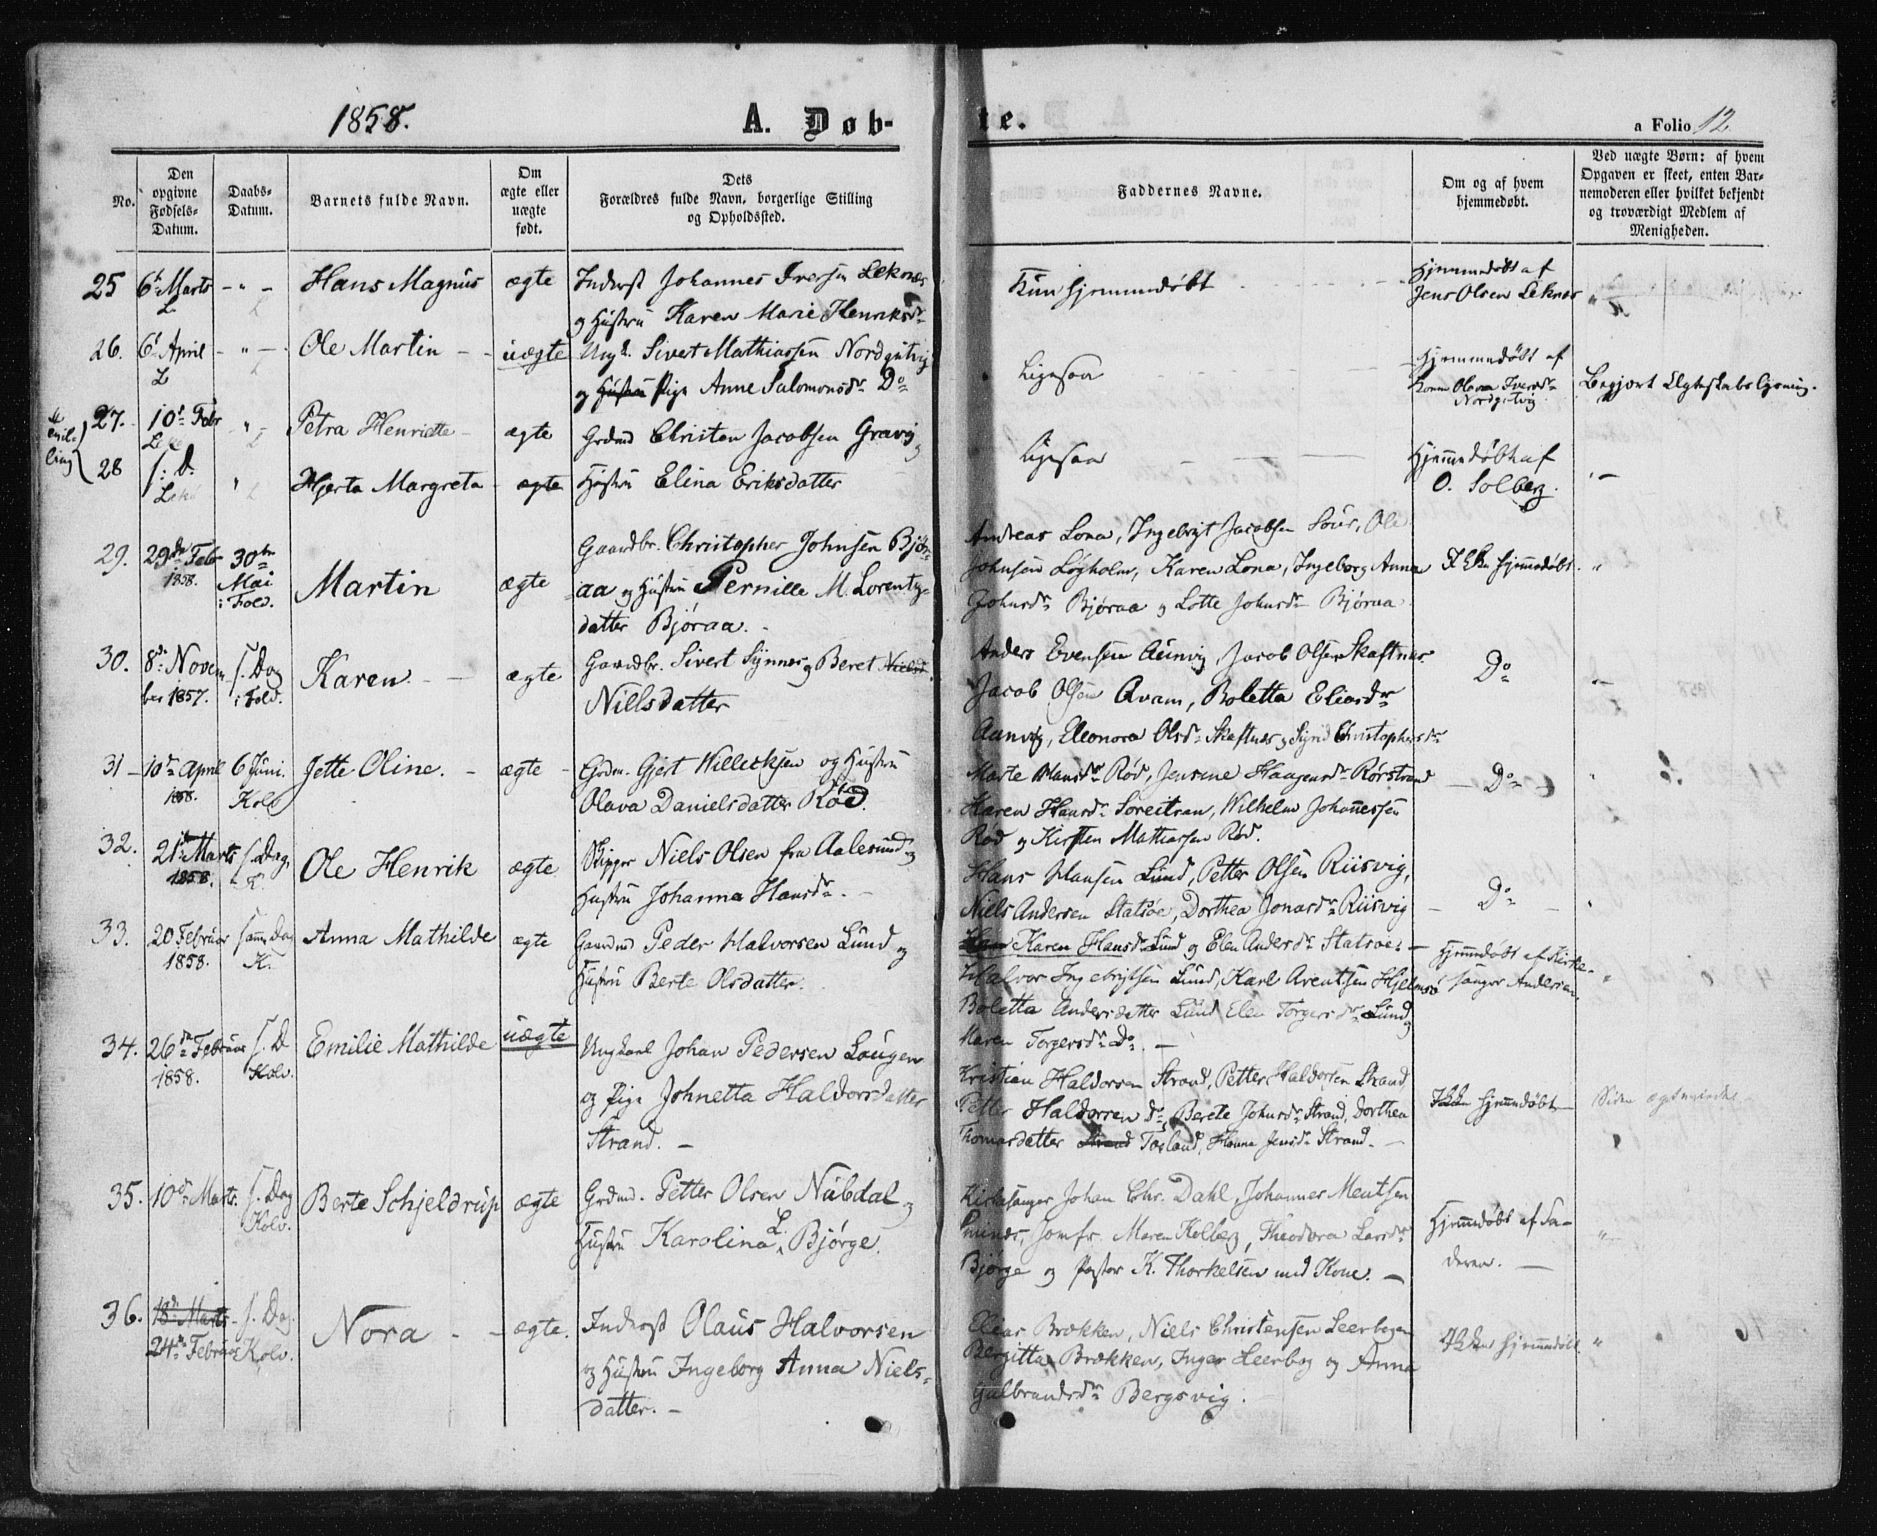 1858.
A. Døb-
te.
a Folio 12
No.
Den opgivne Fødsels-Datum.
Daabs-Datum.
Barnets fulde Navn.
Om ægte eller uægte født.
Dets Forældres fulde Navn, borgerlige Stilling og Opholdssted.
Faddernes Navne.
Om og af hvem hjemmedøbt.
Ved uægte Børn: af hvem Opgaven er skeet, enten Barnemoderen eller hvilket bekjendt og troværdigt Medlem af Menigheden.
25 6te Marts - " - Hans Magnus ægte Inderst Johannes Iversen Leknæs
L og Hustru Karen Marie Henriksdr
Kun hjemmedøbt
Hjemmedøbt af
Jens Olsen Leknæs "
26. 6te April - " - Ole Martin - - uægte Ungk. Sivert Mathiassen Nordgutvig
L og Hustru Pige Anne Salomonsdr Do
Ligesaa
Hjemmedøbt af
Kone Olava Iversdr
Nordgutvig
Begjært Ægteskabs Lysning.
27. 10de Febr - " - Petra Henriette - ægte Grdmd Christen Jacobsen Gravig
Ligesaa
28 s. D. " Hjerta Margreta - ægte Hustru Elina Eriksdatter
Hjemmedøbt af
O. Solberg. " -
29. 29de Febr 30te Martin ægte Gaardbr. Christopher Johnsen Bjør-
1858. Mai aa og Hustru Pernille M. Lorents-
i Fold. datter Bjøraa. -
Andreas Lona, Ingebrigt Jacobsen Sour, Ole
Johnsen Løgholm, Karen Lona, Ingeborg Anna Ikke hjemmedøbt. "
Johnsdr Bjøraa og Lotte Johnsdr Bjøraa
30. 8de Novem- s. Dag Karen. - - ægte Gaardbr. Sivert Synnes og Beret Nielsd.
ber 1857. i Fold. Nielsdatter
Anders Evensen Aunvig, Jacob Olsen Skaftnes
Jacob Olsen Qvam, Boletta Eliasdr
Aunvig, Eleonora Olsdr Skaftnes og Sigrid Christophersdr
Do "
31 - 10de April 6 Juni. Jette Oline. - ægte - Grdm. Gjert Willecksen og Hustru
1858. Kolv Olava Danielsdatter Rød.
Marte Hansdr Rød, Jensine Haagensdr Rørstrand - Do - "
Karen Hansdr Soreitran, Wilhelm Johannessen
Rød og Kirsten Mathiassen Rød.
32. 21de Marts s. Dag, Ole Henrik ægte Skipper Niels Olsen fra Aalesund og
1858. Hustru Johanna Hansdr. -
Hans Hansen Lund, Petter Olsen Riisvig,
Niels Andersen Statsøe, Dorthea Jonasdr Riisvig - Do - "
Karen Hansdr Lund og Elen Andersdr Statsøe. -
33. 20 Februar samme Dag Anna Mathilde ægte Gaardmd Peder Halvorsen Lund og
1858. K. Hustru Berte Olsdatter.
Halvor Ingebrigtsen Lund, Karl Arentsen Hjelmsø
Boletta Andersdatter Lund Elen Torgersdr Lund og
Maren Torgersdr Do. -
Hjemmedøbt af Kirke-
sanger Andersen. "
34. 26de Februar s. D Emilie Mathilde uægte Ungkarl Johan Pedersen Laugen
1858. Kolv. og Pige Johnetta Haldorsdatter
Strand. -
Kristian Haldorsen Strand, Petter Haldorsen Strand,
Petter Haldorsen do, Berete Johnsdr Strand, Dorthea
Thomasdatter Strand Fosland, Hanna Jensdr Strand. -
Ikke hjemmedøbt -
35. 10de Marts. s. Dag Berte Schjeldrup ægte Grdmd. Petter Olsen Nubdal og
Kolv. Hustru Karolina L. Bjørge.
Kirkesanger Johan Chr. Dahl, Johannes Mentsen
Jomfr. Maren Kolberg, Theodora Larsdr
Bjørge og Pastor K. Thorkelsen med Kone. -
Hjemmedøbt af Fa-
deren. - "
36. 18de Marts - s. Dag. Nora - - ægte. Inderst Olaus Halvorsen
24de Februar Kolv. og Hustru Ingeborg Anna Niels-
datter. -
Elias Brækken, Niels Christensen Leerbogen
Bergitta Brækken, Inger Leerbog og Anna
Gulbrandsdr Bergsvig.
Ikke hjemmedøbt. "